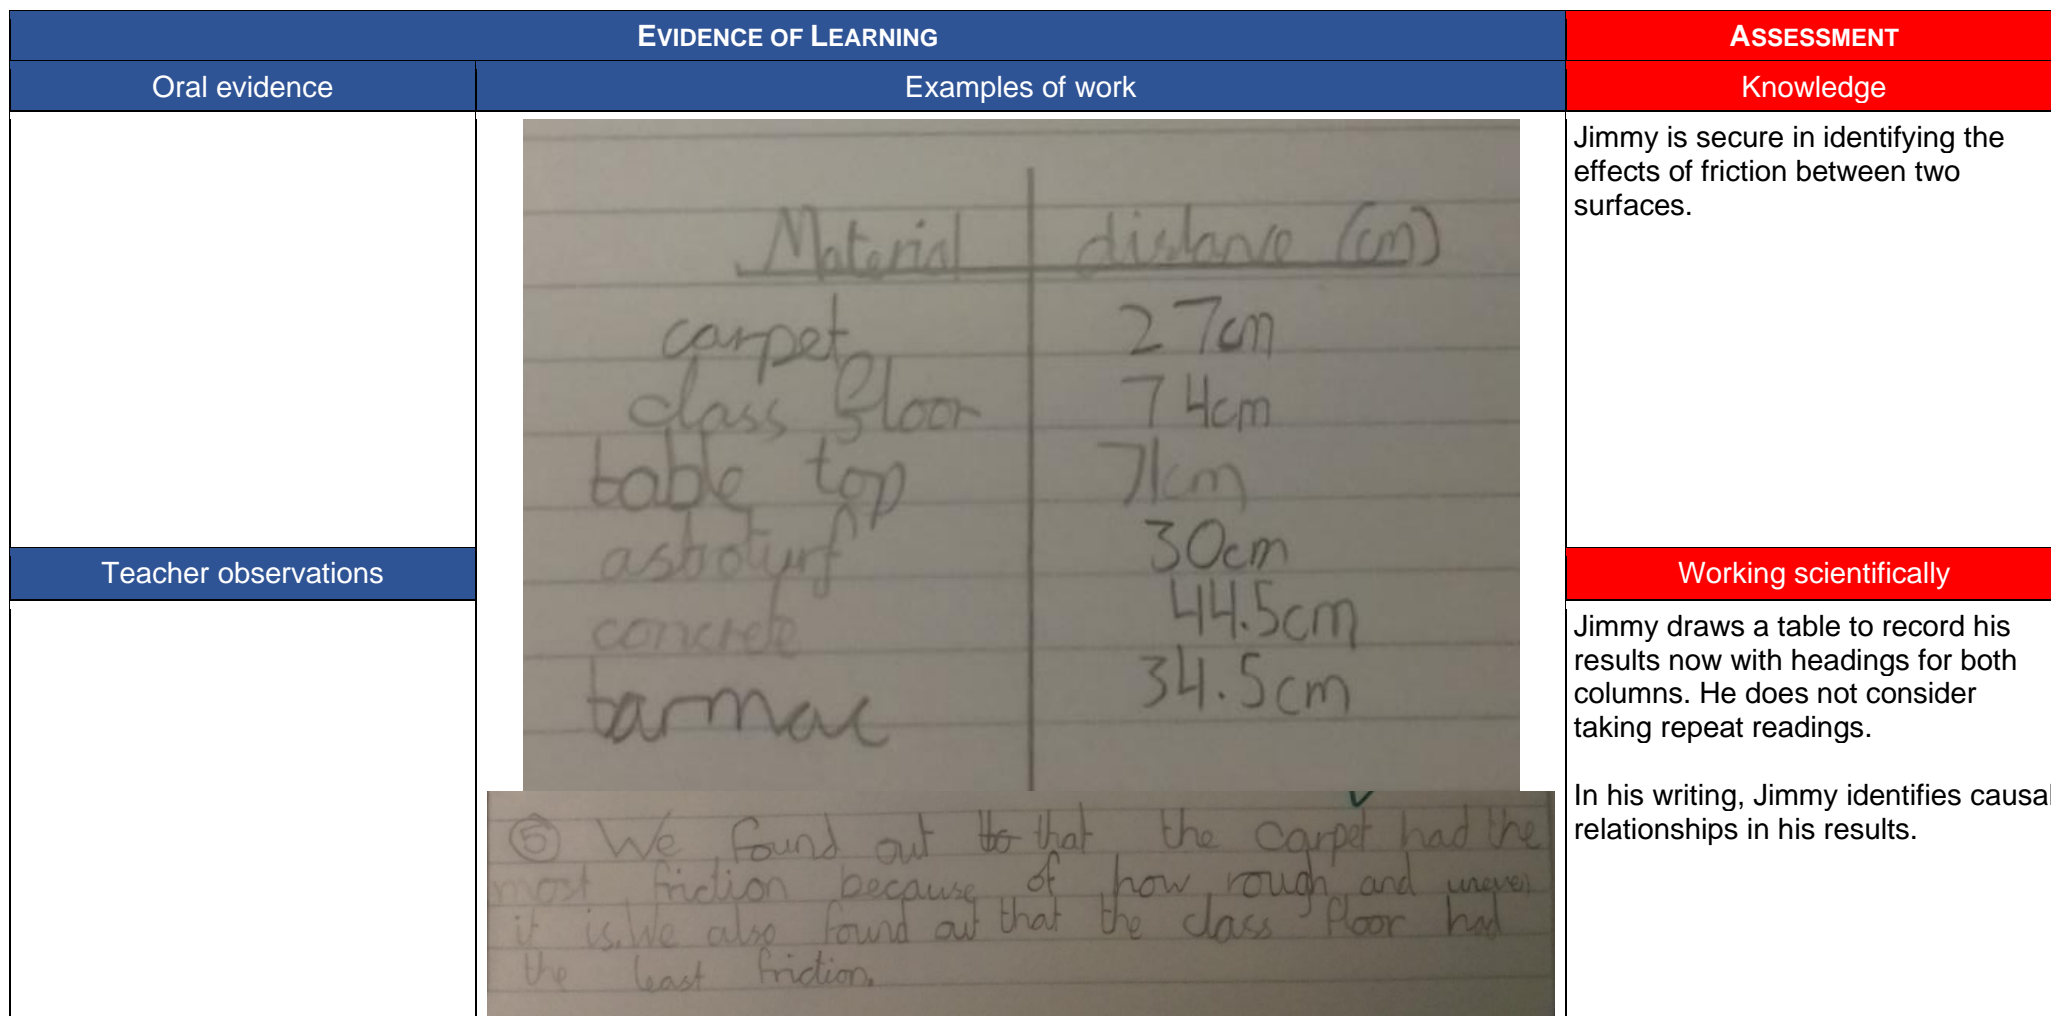 EVIDENCE OF LEARNING
ASSESSMENT
Oral evidence
Examples of work
Knowledge
Material distance (cm)
carpet 27cm
class floor 74cm
table top 71cm
astroturf 30cm
concrete 44.5cm
tarmac 34.5cm
⑤ We found out to that the carpet had the
most friction because of how rough and uneven
it is. We also found out that the class floor had
the least friction.
Jimmy is secure in identifying the
effects of friction between two
surfaces.
Teacher observations
Working scientifically
Jimmy draws a table to record his
results now with headings for both
columns. He does not consider
taking repeat readings.
In his writing, Jimmy identifies causal
relationships in his results.